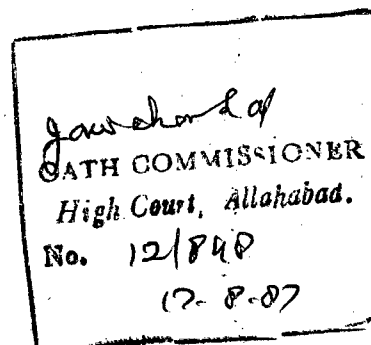 Jawahar Lal
OATH COMMISSIONER
High Court, Allahabad.
No. 12/848
17-8-87